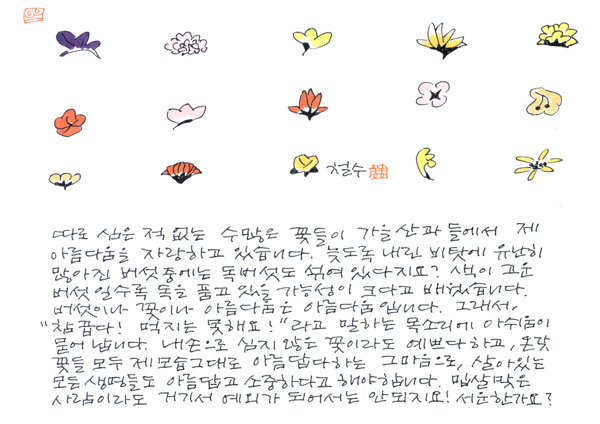 철수
따로 심은 적 없는 수많은 꽃들이 가을 산과 들에서 제
아름다움을 자랑하고 있습니다. 늦도록 내린 비 탓에 유난히
많아진 버섯 중에는 독버섯도 섞여 있다지요? 색이 고운
버섯일수록 독을 품고 있을 가능성이 크다고 배웠습니다.
버섯이나 꽃이나 아름다움은 아름다움입니다. 그래서,
"참 곱다! 먹지는 못해요!"라고 말하는 목소리에 아쉬움이
묻어납니다. 내손으로 심지 않은 꽃이라도 예쁘다하고, 온갖
꽃들 모두 제모습그대로 아름답다하는 그마음으로, 살아있는
모든 생명들도 아름답고 소중하다고 해야합니다. 밉살맞은
사람이라도 거기서 예외가 되어서는 안되지요! 서운한가요?